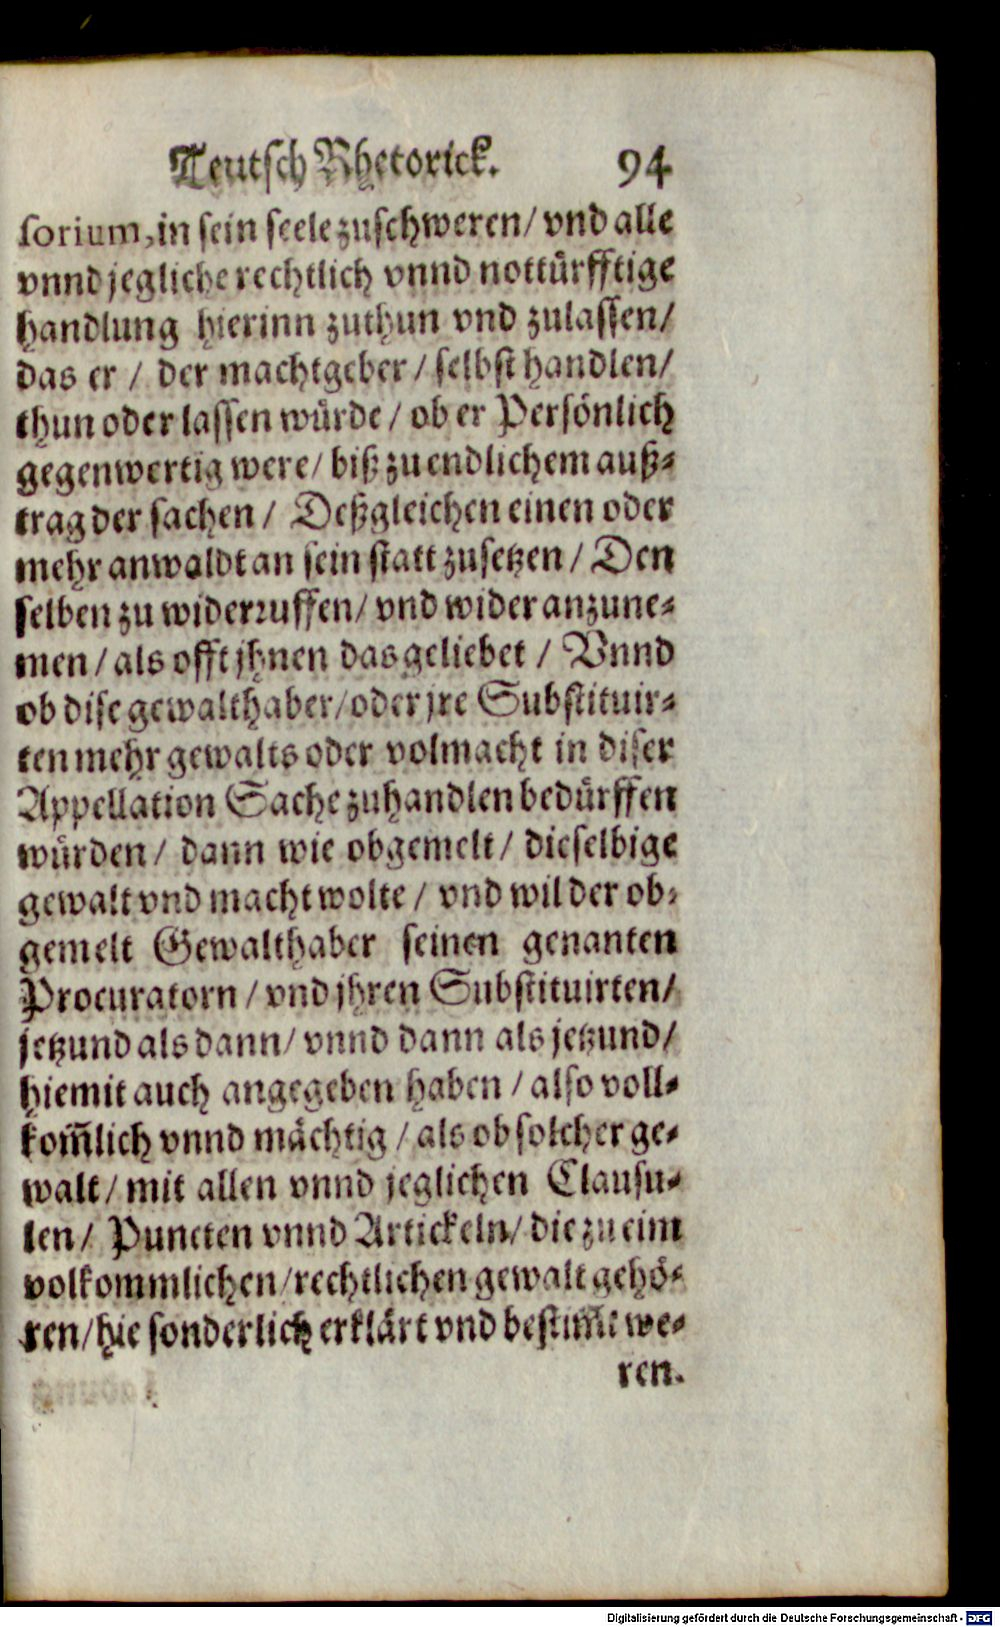 Teutsch Rhetorick. 94
sorium, in sein seele zuschweren / vnd alle
vnnd jegliche rechtlich vnnd nottürfftige
handlung hierinn zuthun vnd zulassen /
das er / der machtgeber / selbst handlen /
thun oder lassen würde / ob er Persönlich
gegenwertig were / biß zu endlichem auß⸗
trag der sachen / Deßgleichen einen oder
mehr anwaldt an sein statt zusetzen / Den
selben zu widerruffen / vnd wider anzune⸗
men / als offt jhnen das geliebet / Vnnd
ob dise gewalthaber / oder jre Substituir⸗
ten mehr gewalts oder volmacht in diser
Appellation Sache zuhandlen bedürffen
würden / dann wie obgemelt / dieselbige
gewalt vnd macht wolte / vnd wil der ob⸗
gemelt Gewalthaber seinen genanten
Procuratorn / vnd jhren Substituirten /
jetzund als dann / vnnd dann als jetzund /
hiemit auch angegeben haben / also voll⸗
kom̃lich vnnd mächtig / als ob solcher ge⸗
walt / mit allen vnnd jeglichen Clausu⸗
len / Puncten vnnd Artickeln / die zu eim
volkommlichen / rechtlichen gewalt gehö⸗
ren / hie sonderlich erklärt vnd bestim̃t we⸗
ren.
Digitalisierung gefördert durch die Deutsche Forschungsgemeinschaft - DFG